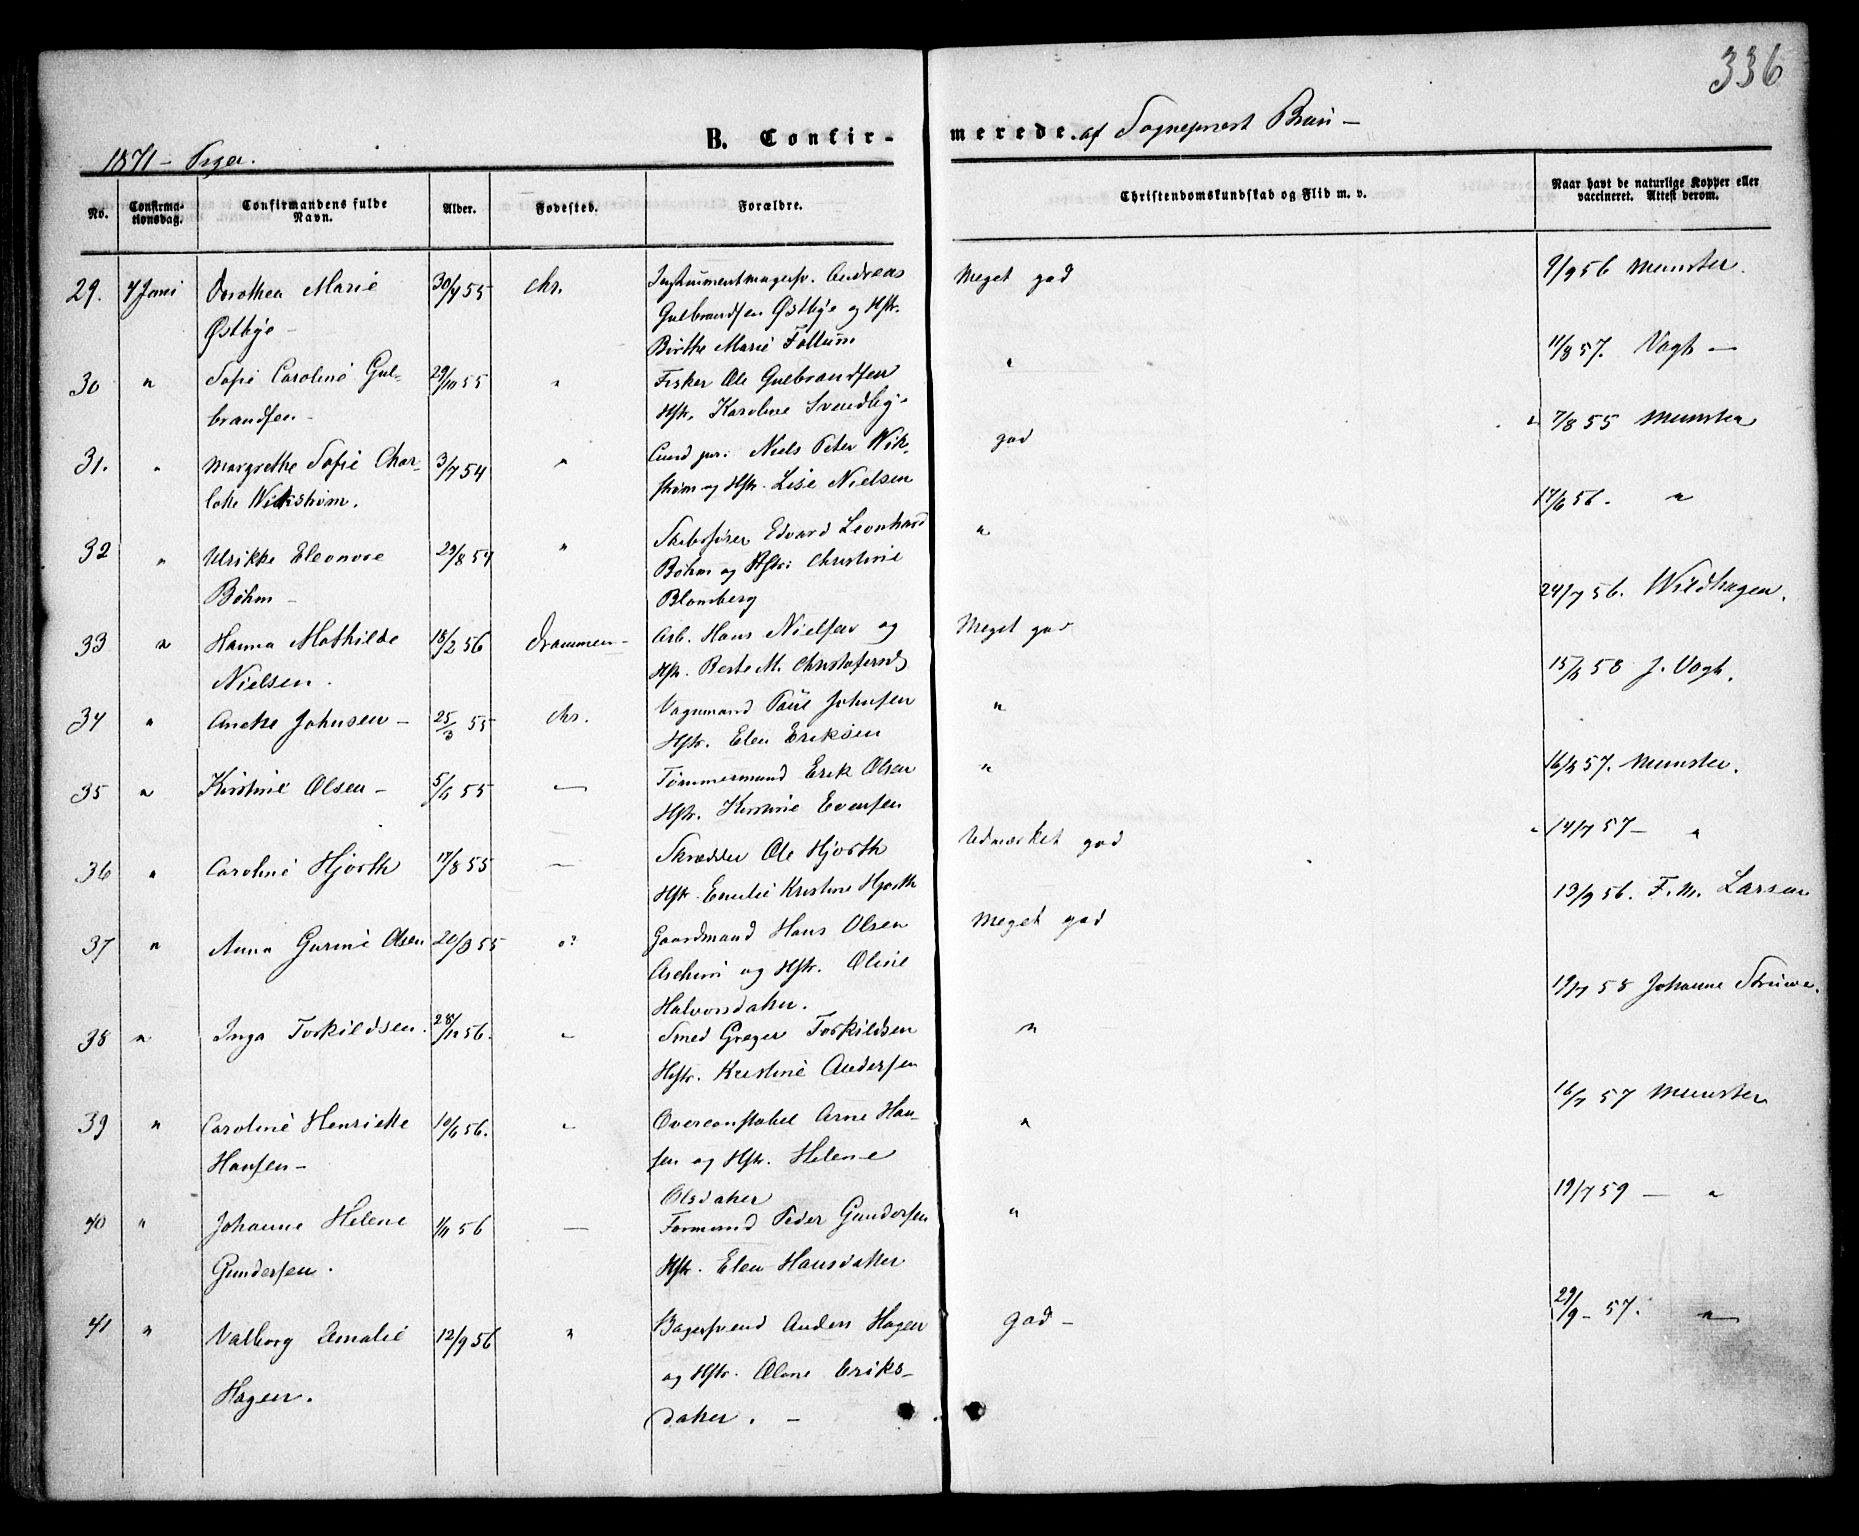 336
1871 – Piger.
B. Confir-
merede. af Sognepræst Brun –
No.
Confirma-
tionsdag.
Confirmandens fulde
Navn.
Alder.
Fødested.
Forældre.
Christendomskundskab og Flid m. v.
Naar havt de naturlige Kopper eller
vaccineret. Attest derom.
29. 4 Juni Dorothea Marie 30/4 55 Chr. Instrumentmagersv. Andreas Meget god 9/9 56 Munster.
Østbye – Gulbrandsen Østbye og Hstr.
Birthe Marie Follum
30 " Sofie Caroline Gul- 29/10 55 " Fisker Ole Gulbrandsen " 11/8 57. Vogh –
brandsen – Hstr. Karoline Svendby.
31. " Margrethe Sofie Char- 3/7 54 " Niels Peter Wik- god " 7/8 55 Munster
lotte Wickstrøm. strøm og Hstr. Lise Nielsen
32 " Ulrikke Eleonore 23/8 54 " Skibsfører Edvard Leonhard " 17/6 56. "
Bøhm – Bøhm og Hstr: Christine
Blomberg
33 " Hanna Mathilde 18/2 56 Drammen – Arb. Hans Nielsen og Meget god 24/7 56. Wildhagen.
Nielsen. Hstr. Berte M. Christofersd.
34 " Anette Johnsen – 25/3 55 Chr. Vognmand Paul Johnsen " 15/8 58 J. Vogh.
Hstr. Elen Eriksen
35 " Kirstine Olsen – 5/6 55 – Tømmermand Erik Olsen " 16/8 57. Munster.
Hstr. Kirstine Evensen
36 " Caroline Hjorth 17/8 55 – Skrædder Ole Hjorth Udmærket god " 14/7 57 – "
Hstr. Emilie Kristine Hjorth
37 " Anna Gurine Olsen 20/3 55 o? Gaardmand Hans Olsen Meget god 13/9 56. F. M. Larsen
Aschim og Hstr. Oline
Halvorsdatter.
38 " Inga Torkildsen. 28/12 56. " Smed Greger Torkildsen " 19/7 58 Johanne Struwe.
Hstr. Kristine Andersen
39 " Caroline Henriette 10/6 56. " Overconstabel Arne Han- " 16/7 57 Munster
Hansen – sen og Hstr. Helene
Olsdatter
40 " Johanne Helene 1/11 56 – Formand Peder Gundersen " 19/7 59 – "
Gundersen. Hstr. Elen Hansdatter
41 " Valborg Amalie 12/9 56 " Bagersvend Anders Hagen god – 29/9 – 57. "
Hagen. og Hstr. Oline Eriks-
datter. –